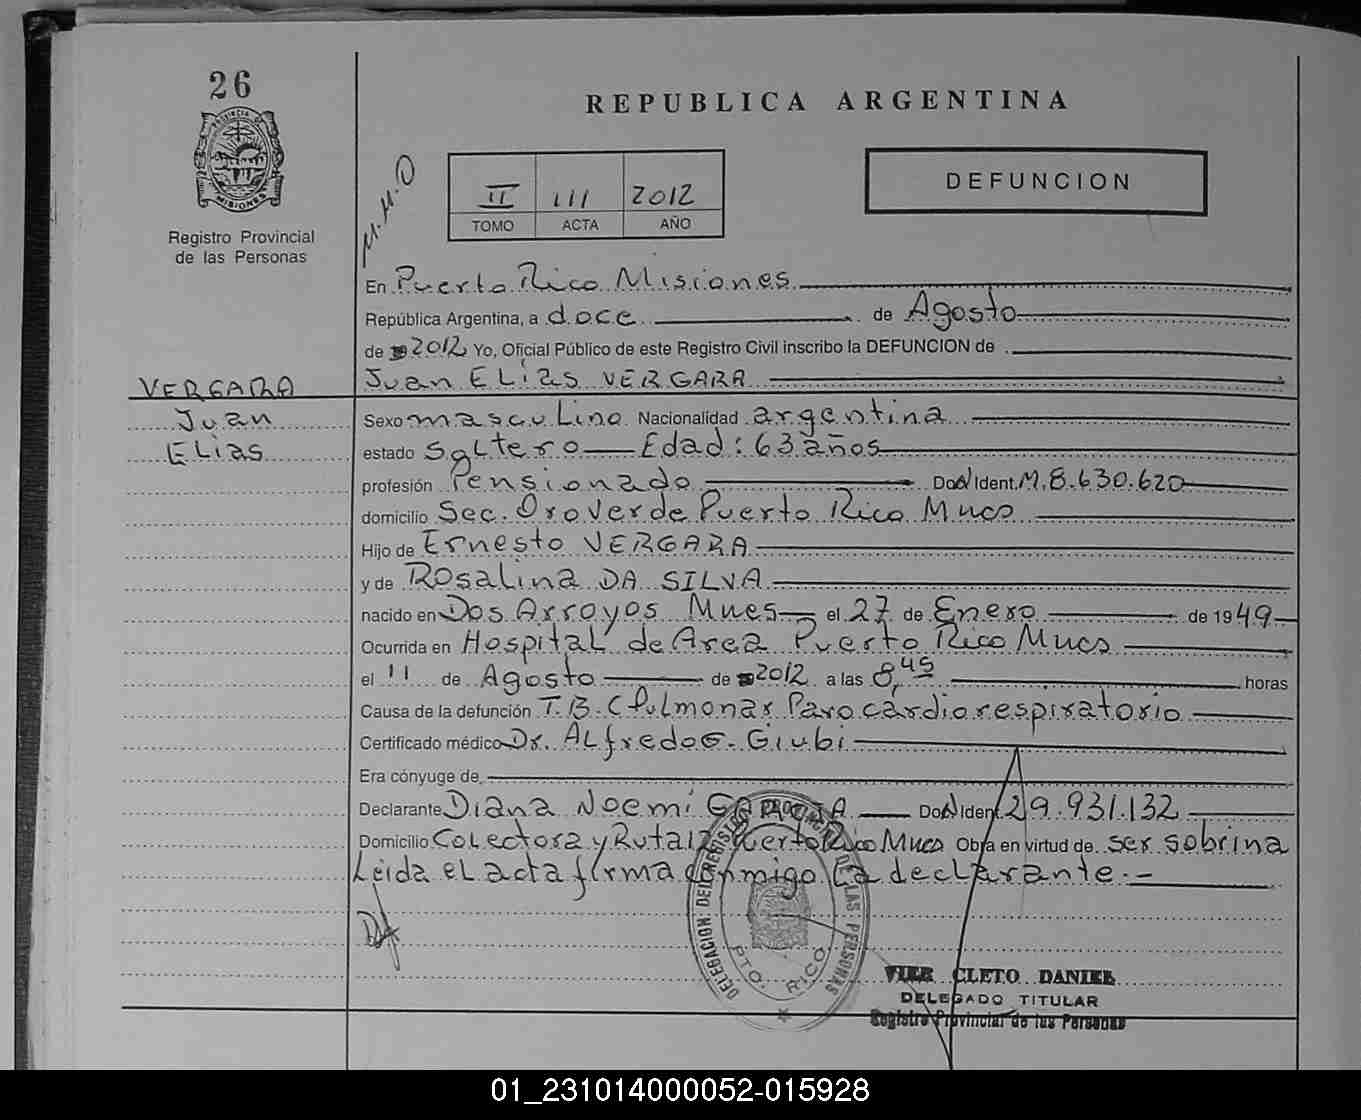 26
PROVINCIA DE
MISIONES
Registro Provincial
de las Personas
REPUBLICA ARGENTINA
M.M.D
II III 2012
TOMO ACTA AÑO
DEFUNCION
En Puerto Rico Misiones
República Argentina, a doce de Agosto
de 2012 Yo, Oficial Público de este Registro Civil inscribo la DEFUNCION de
Juan ELías VERGARA
VERGARA
Juan
ELias
Sexo mascuLino Nacionalidad argentina
estado soLtero Edad: 63 años
profesión Pensionado Doc. Ident. M.8.630.620
domicilio Sec. Oro Verde Puerto Rico Mnes
Hijo de Ernesto VERGARA
y de Rosalina DA SILVA
nacido en Dos Arroyos Mnes el 27 de Enero de 1949
Ocurrida en Hospital de Area Puerto Rico Mnes
el 11 de Agosto de 2012 a las 8,45 horas
Causa de la defunción T.B.C Pulmonar Paro cardiorespiratorio
Certificado médico Dr. ALfredo G. Giubi
Era cónyuge de
Declarante Diana Noemí Doc. Ident. 29.931.132
Domicilio CoLectora y Ruta 12 Puerto Rico Mnes Obra en virtud de ser sobrina
Leida eL acta firma conmigo La decLarante.-
DELEGACION DEL REGISTRO PROVINCIAL DE LAS PERSONAS
PTO. RICO
VIER CLETO DANIEL
DELEGADO TITULAR
Registro Provincial de las Personas
01_231014000052-015928